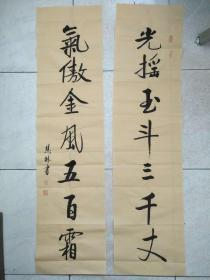 光摇玉斗三千丈
氣傲金風五百霜